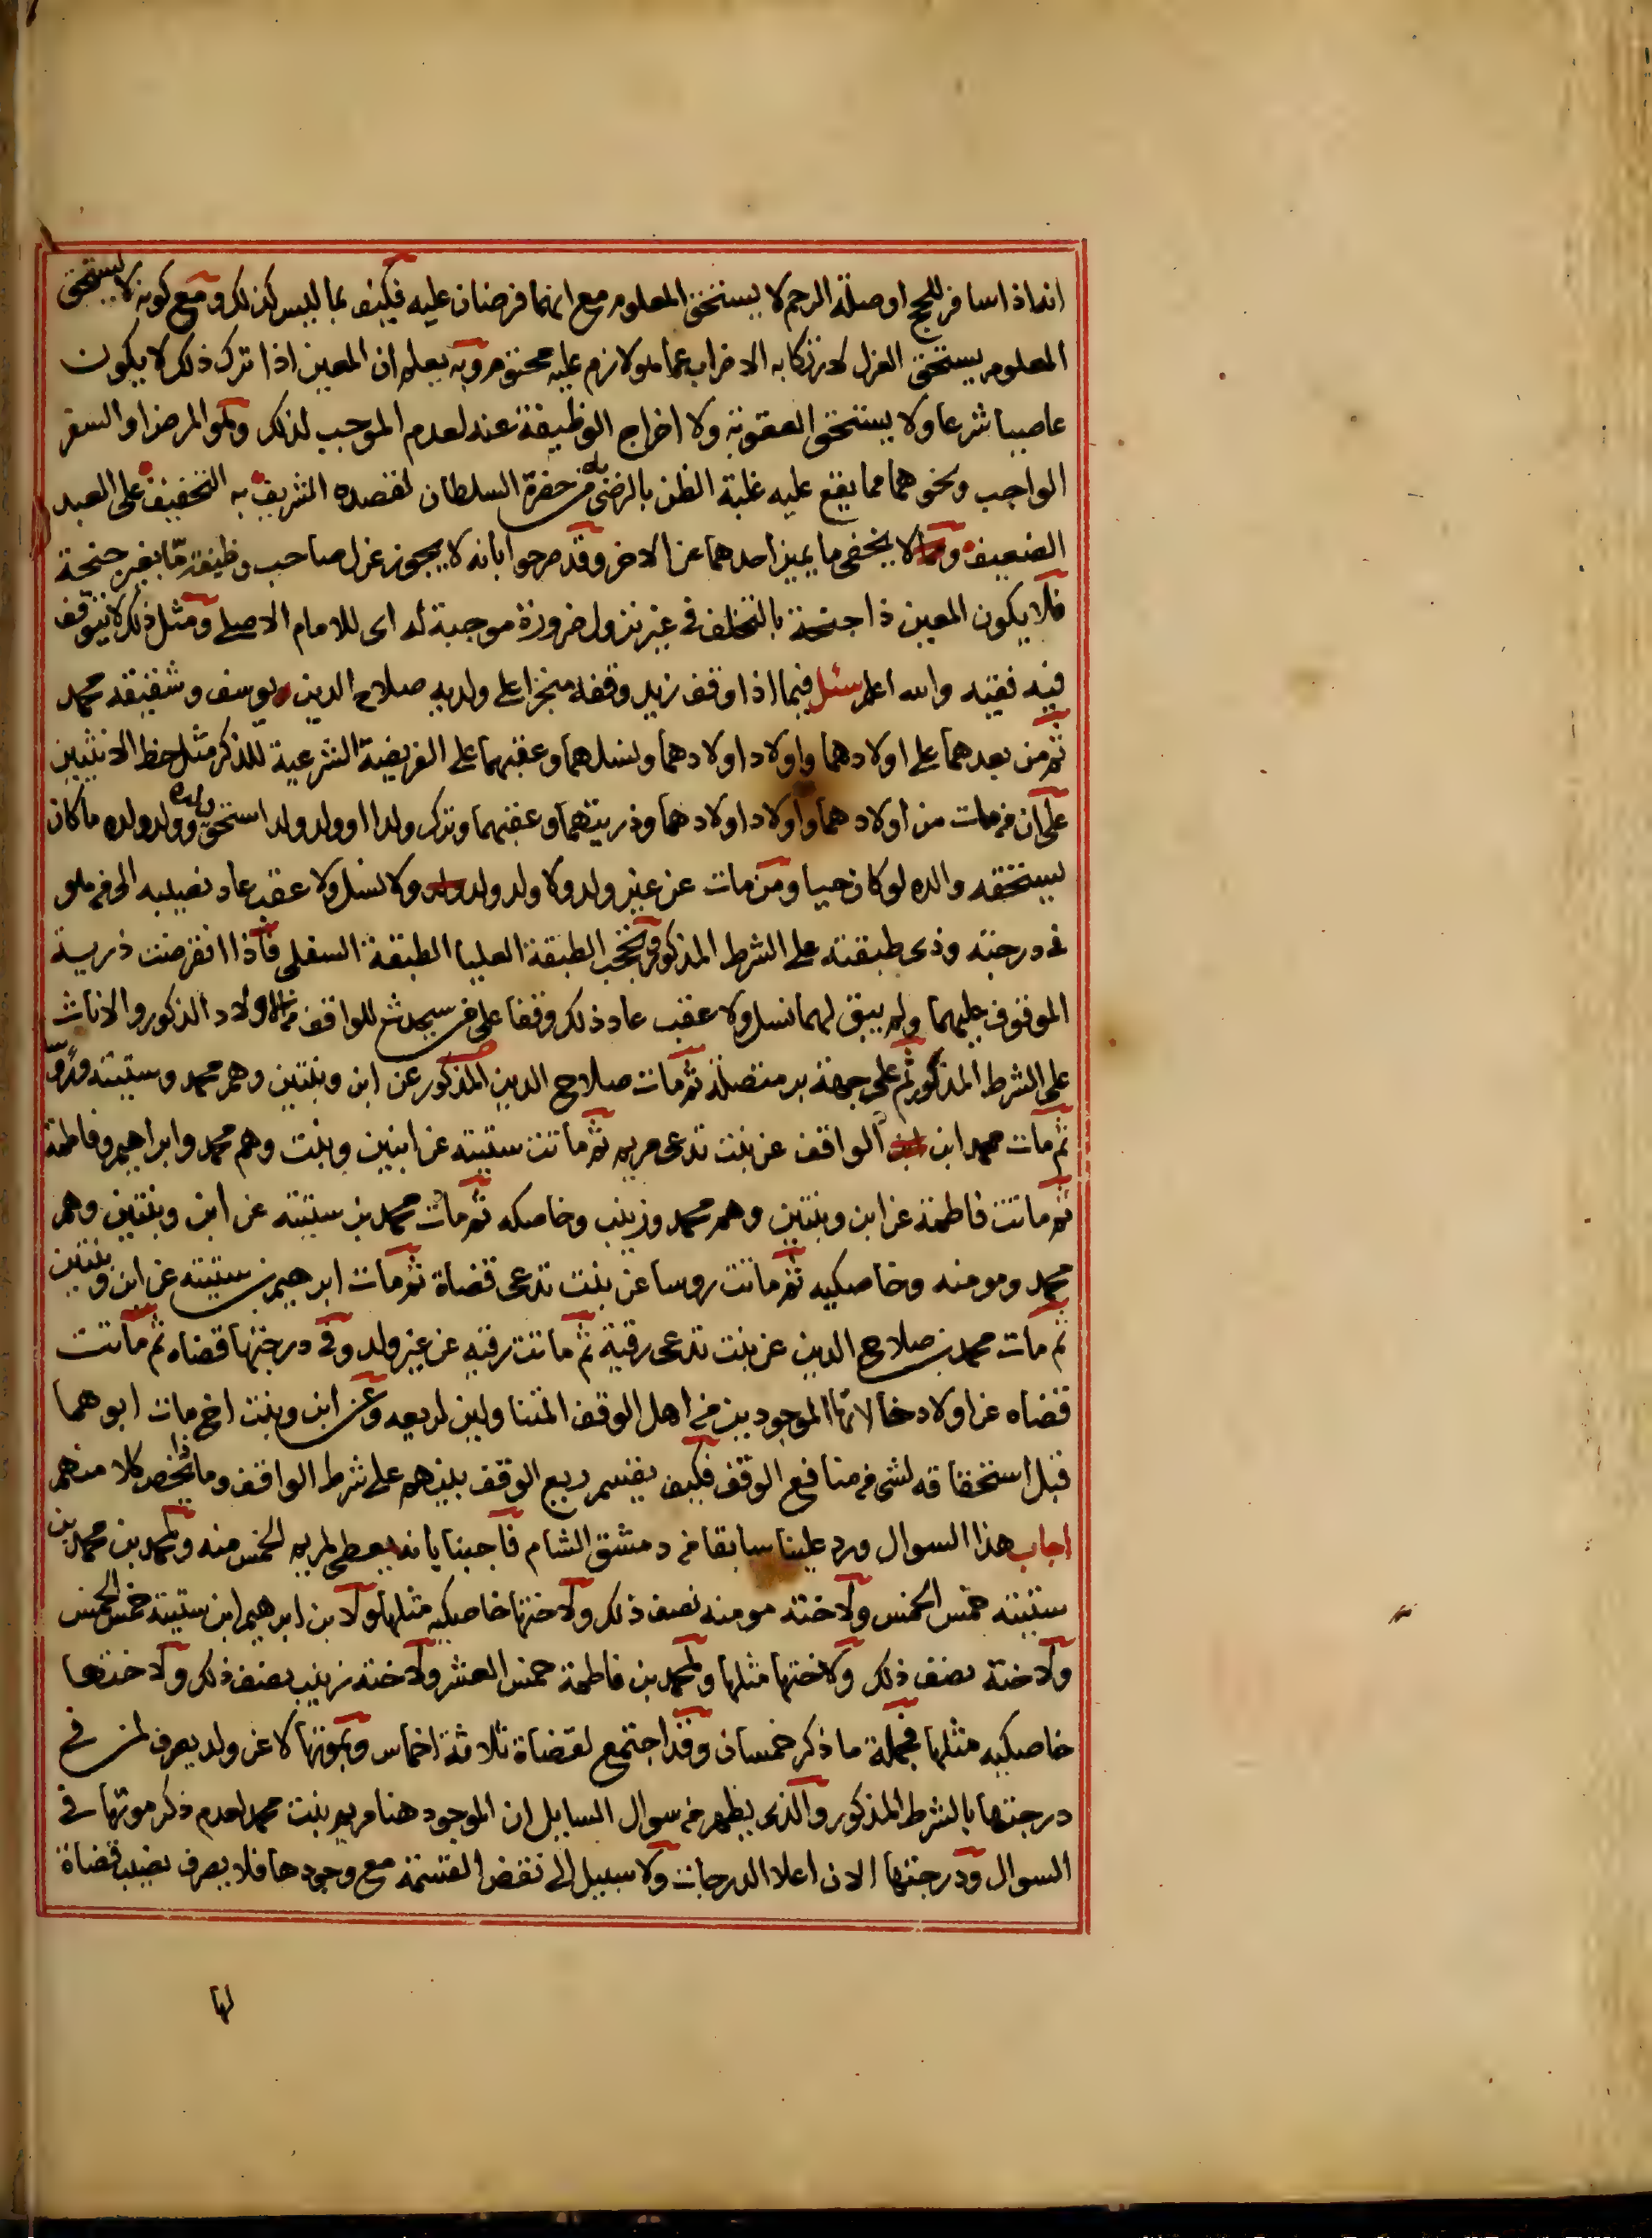 انه اذا سافر للحج او صلة الرحم لا يستحق المعلوم مع انهما فرضان عليه فكيف بما ليس كذلك ومع كونه لا يستحق
المعلوم يستحق العزل لارتكابه الاضراب عما هو لازم عليه محتوم وبه يعلم ان المعين اذا ترك ذلك لا يكون
عاصيا شرعا ولا يستحق العقوبة ولا اخراج الوظيفة عنه لعدم الموجب لذلك ونحو المرض او السفر
الواجب ونحوهما مما يقع عليه غلبة الظن بالرضى به من حضرة السلطان لقصده الشريف به التخفيف على العبد
الضعيف ولا يخفى ما يميز احدهما عن الاخر وقد صرحوا بانه لا يجوز عزل صاحب وظيفة ما بغير جنحة
فلا يكون المعين ذا جنحة بالتخلف في غير نزول ضرورة موجبة له اى للامام الاصلى ومثل ذلك لا يتوقف
فيه فقيه والله اعلم سئل فيما اذا وقف زيد وقفه منجزا على ولديه صلاح الدين يوسف وشقيقه محمد
ثم من بعدهما على اولادهما واولاد اولادهما ونسلهما وعقبهما على الفريضة الشرعية للذكر مثل حظ الانثيين
على ان من مات من اولادهما واولاد اولادهما وذريتهما وعقبهما وترك ولدا او ولد ولد استحق ولده وولد ولده ما كان
يستحقه والده لو كان حيا ومن مات عن غير ولد ولا ولد ولد ولا نسل ولا عقب عاد نصيبه الى من هو
في درجته وذى طبقته على الشرط المذكور تحجب الطبقة العليا الطبقة السفلى فاذا انقرضت ذرية
الموقوف عليهما ولم يبق لهما نسل ولا عقب عاد ذلك وقفا على من سيحدث للواقف من الاولاد الذكور والاناث
على الشرط المذكور ثم على جهة بر متصلة ثم مات صلاح الدين المذكور عن ابن وبنتين وهم محمد وستيته وروسا
ثم مات محمد ابن الواقف عن بنت تدعى مريم ثم ماتت ستيته عن ابنين وبنت وهم محمد وابراهيم وفاطمة
ثم ماتت فاطمة عن ابن وبنتين وهم محمد وزينب وخاصكه ثم مات محمد بن ستيته عن ابن وبنتين وهم
محمد ومومنه وخاصكيه ثم ماتت روسا عن بنت تدعى قضاة ثم مات ابرهيم بن ستيته عن ابن وبنتين
ثم مات محمد بن صلاح الدين عن بنت تدعى رقية ثم ماتت رقيه عن غير ولد وفي درجتها قضاه ثم ماتت
قضاه عن اولاد خالاتها الموجودين من اهل الوقف المتناولين لريعه وعن ابن وبنت اخ مات ابوهما
قبل استحقاقه لشى من منافع الوقف فكيف يقسم ريع الوقف بينهم على شرط الواقف وماذا يخص كلا منهم
اجاب هذا السوال ورد علينا سابقا من دمشق الشام فاجبنا بانه يعطى لمريم الخمس منه ولمحمد بن محمد بن
ستيته خمس الخمس ولاخته مومنه نصف ذلك ولاختها خاصكيه مثلها ولابن ابرهيم ابن ستيته خمس الخمس
ولاخته نصف ذلك ولاختها مثلها ولمحمد بن فاطمة خمس العشر ولاخته زينب نصف ذلك ولاختها
خاصكيه مثلها فجملة ما ذكر خمسان وقد اجتمع لقضاة ثلاثة اخماس وبموتها لا عن ولد يصرف لمن في
درجتها بالشرط المذكور والذى يظهر من سوال السايل ان الموجود هنا مريم بنت محمد لعدم ذكر موتها في
السوال ودرجتها الان اعلا الدرجات ولا سبيل الى نقض القسمة مع وجودها فلا يصرف نصيب قضاة
لها